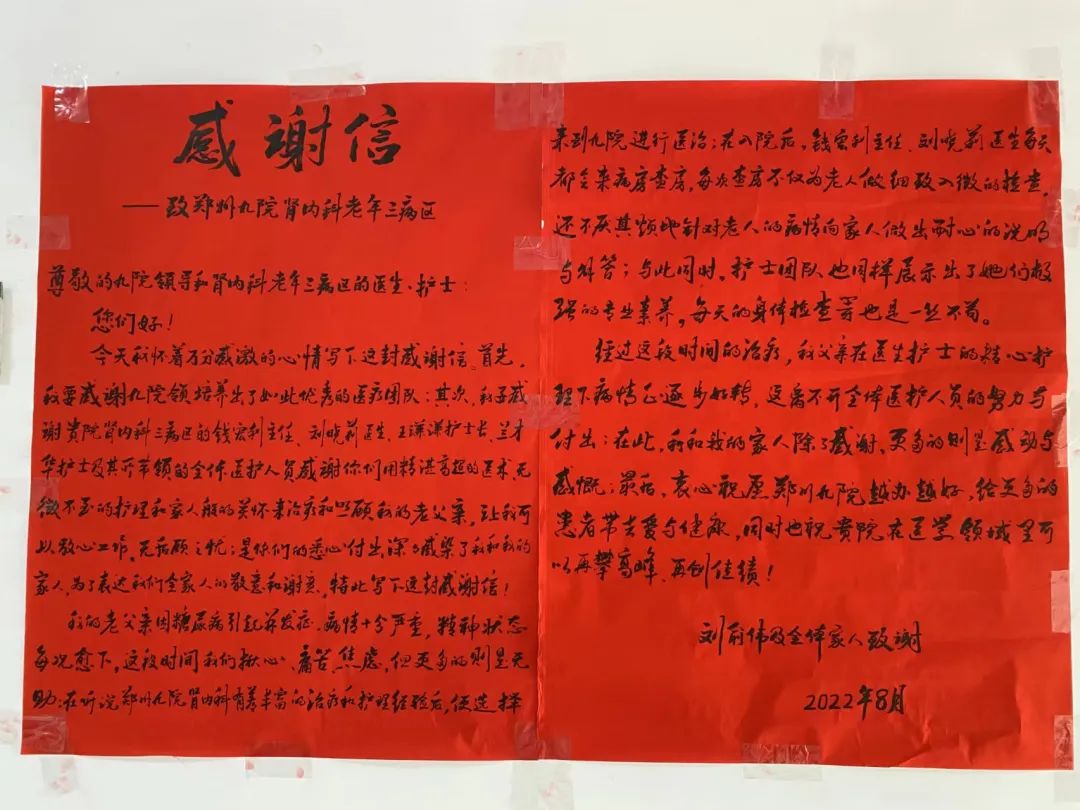 感谢信
——致郑州九院肾内科老年三病区
尊敬的九院领导和肾内科老年三病区的医生、护士：
您们好！
今天我怀着万分感激的心情写下这封感谢信。首先，
我要感谢九院领培养出了如此优秀的医疗团队；其次，我予感
谢贵院肾内科三病区的钱宏利主任、刘晓莉医生、王谦谦护士长、兰才
华护士及其所带领的全体医护人员感谢你们用精湛高超的医术、无
微不至的护理和家人般的关怀来治疗和照顾我的老父亲，让我可
以放心工作，无后顾之忧；是你们的悉心付出，深深感染了我和我的
家人，为了表达我们全家人的敬意和谢意，特此写下这封感谢信！
我的老父亲因糖尿病引起并发症，病情十分严重，精神状态
每况愈下，这段时间我们揪心、痛苦、焦虑，但更多的则是无
助；在听说郑州九院肾内科有着丰富的治疗和护理经验后，便选择
来到九院进行医治；在入院后，钱宏利主任、刘晓莉医生每天
都会来病房查房，每次查房不仅为老人做细致入微的检查，
还不厌其烦地针对老人的病情向家人做出耐心的说明
与解答；与此同时，护士团队也同样展示出了她们极
强的专业素养，每天的身体检查等也是一丝不苟。
经过这段时间的治疗，我父亲在医生护士的精心护
理下病情正逐步好转，这离不开全体医护人员的努力与
付出；在此，我和我的家人除了感谢，更多的则是感动与
感慨；最后，衷心祝愿郑州九院越办越好，给更多的
患者带去爱与健康，同时也祝贵院在医学领域里可
以再攀高峰、再创佳绩！
刘前伟及全体家人致谢
2022年8月